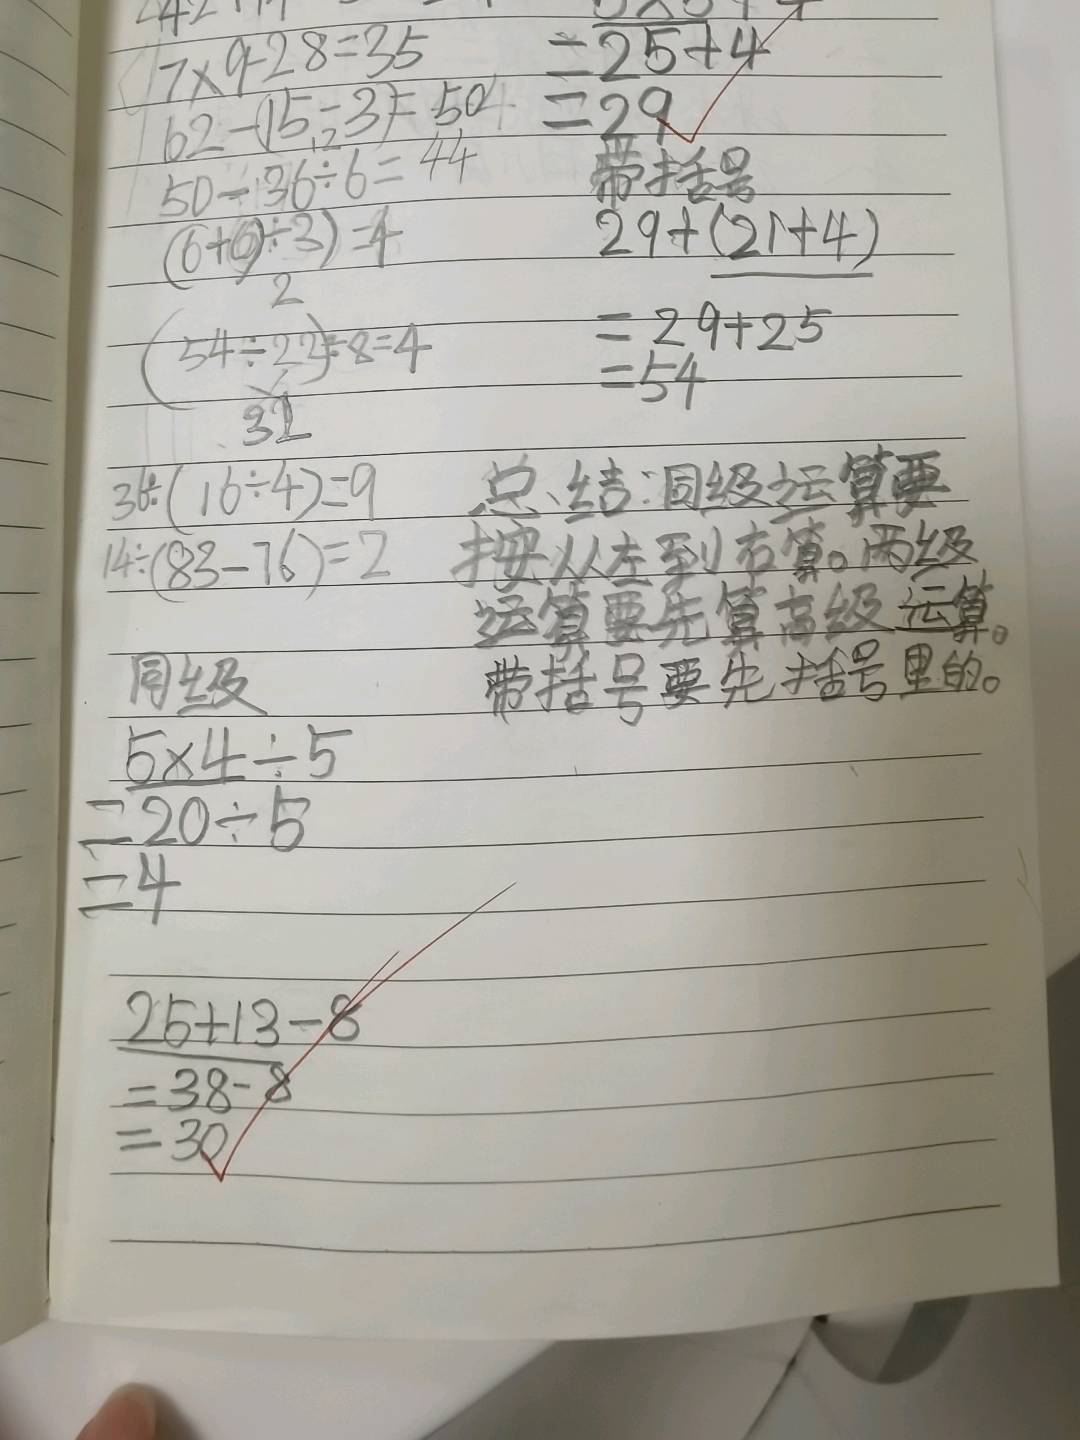 7×9-28=35
62-(15-3)=50
12
50-36÷6=44
(6+6)÷3)=4
2
(54÷22)÷8=4
32
36÷(16÷4)=9
14÷(83-76)=2
同级
5×4÷5
=20÷5
=4
25+13-8
=38-8
=30
=25+4
=29
带括号
29+(21+4)
=29+25
=54
总结:同级运算要
按从左到右算。两级
运算要先算高级运算。
带括号要先括号里的。